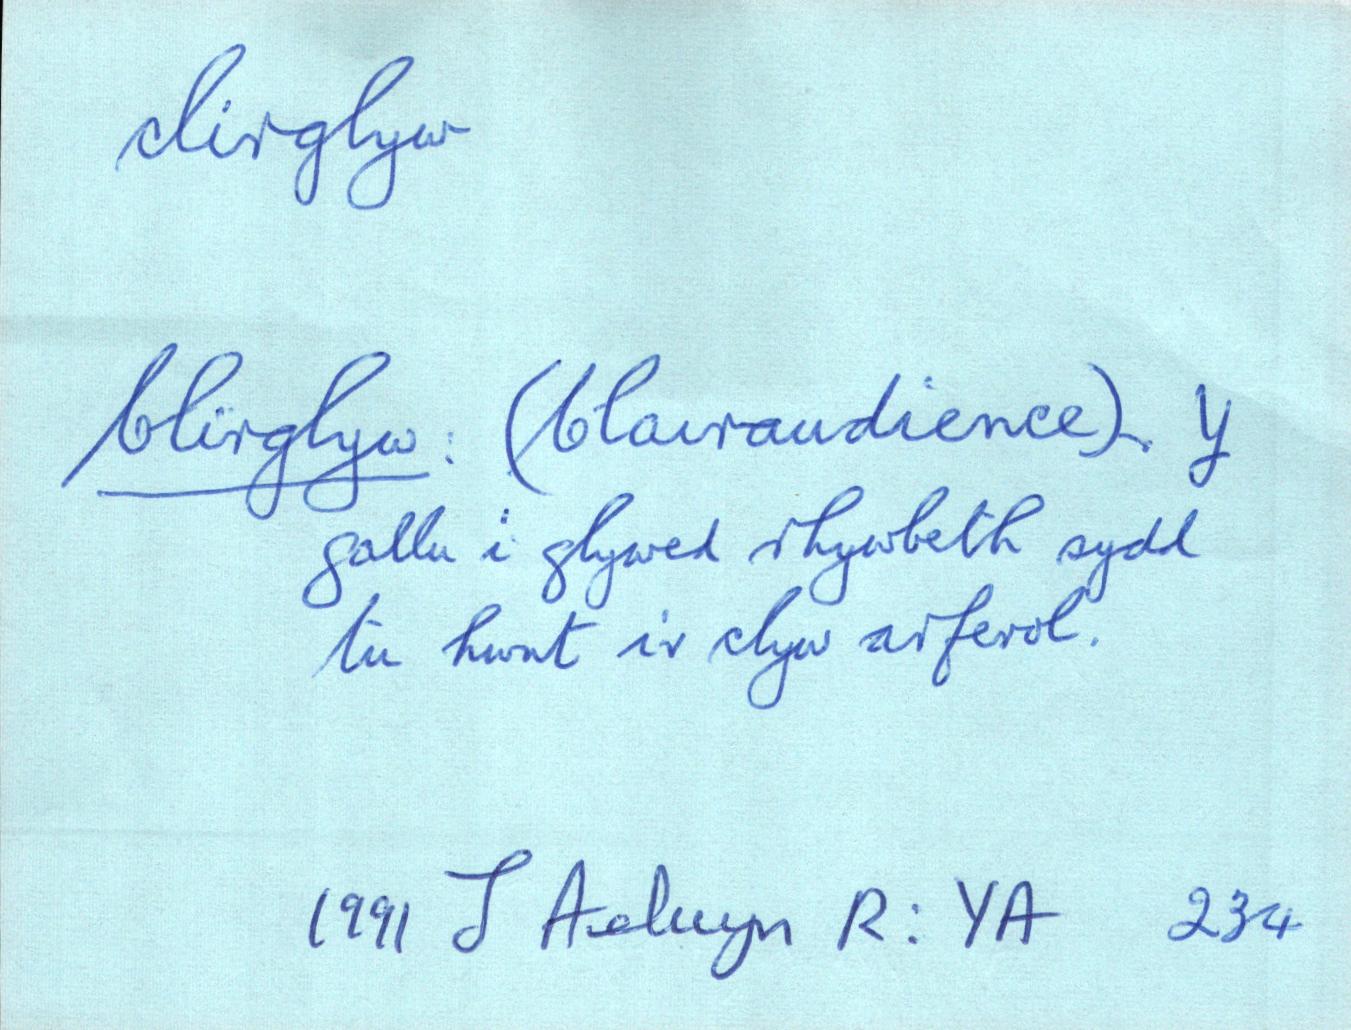 clirglyw
Clirglyw: (Clairaudience). Y
gallu i glywed rhywbeth sydd
tu hwnt i'r clyw arferol.
1991 J Aelwyn R: YA 234